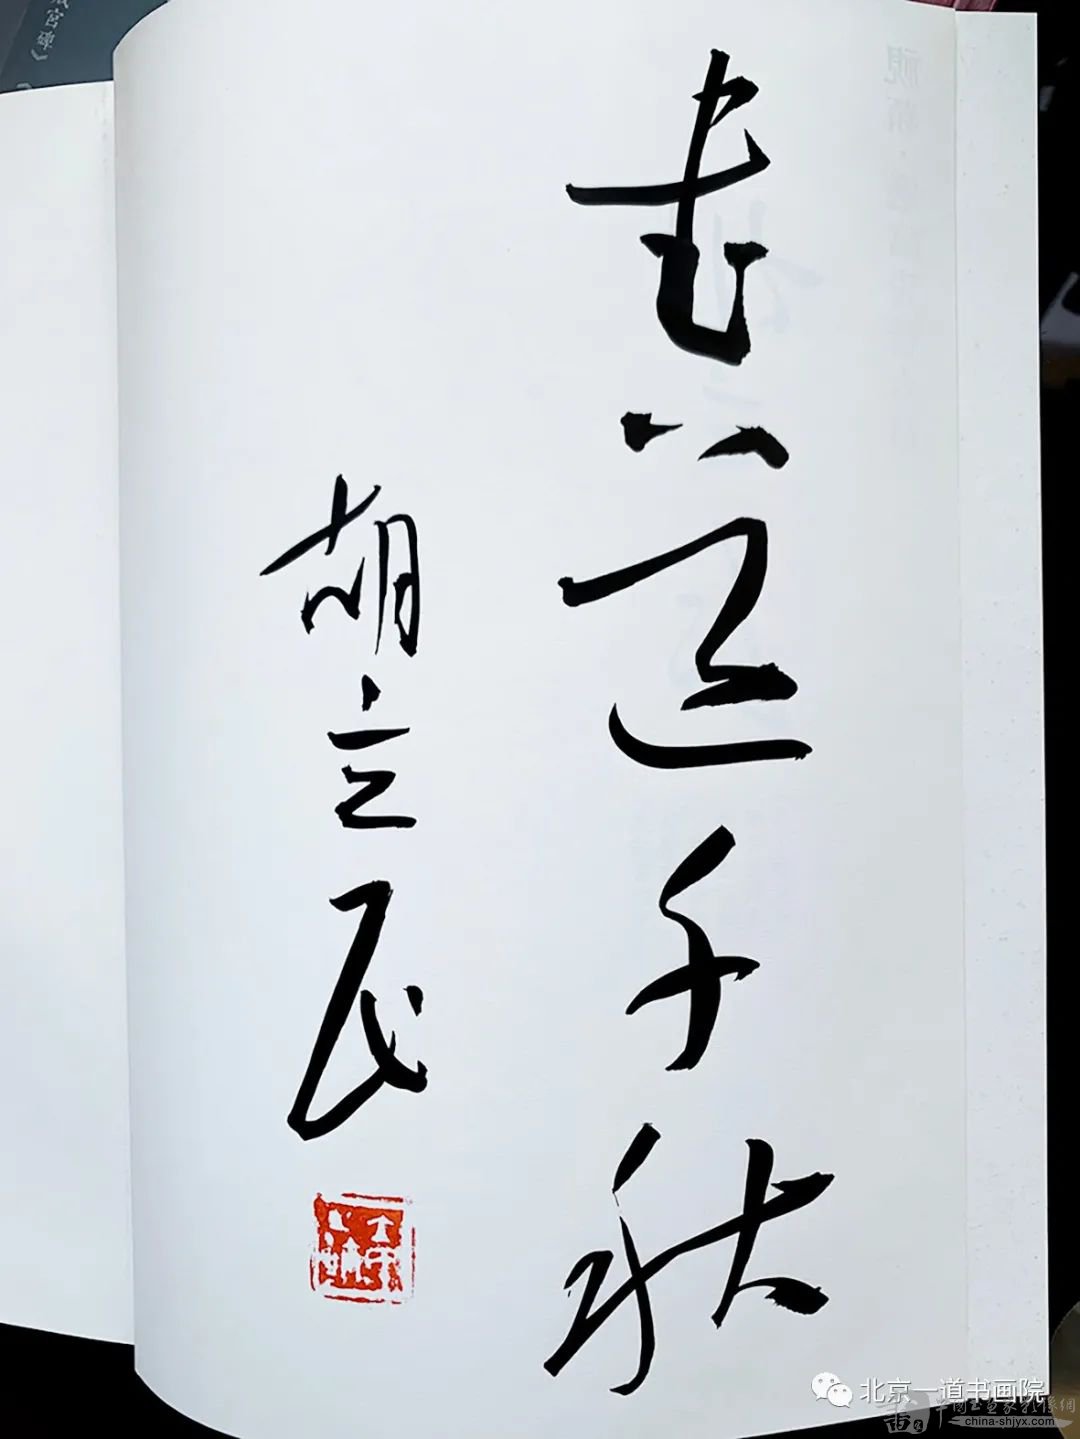 書道千秋
胡立民
北京一道书画院
china-shjyx.com